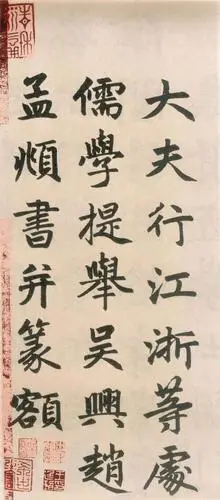 大夫行江浙等處
儒學提舉吳興趙
孟頫書并篆額